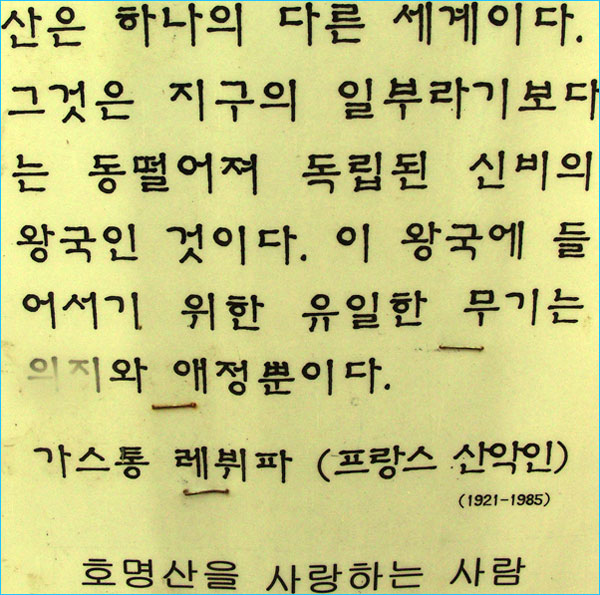 산은 하나의 다른 세계이다.
그것은 지구의 일부라기보다
는 동떨어져 독립된 신비의
왕국인 것이다. 이 왕국에 들
어서기 위한 유일한 무기는
의지와 애정뿐이다.
가스통 레뷔파 (프랑스 산악인)
(1921-1985)
호명산을 사랑하는 사람